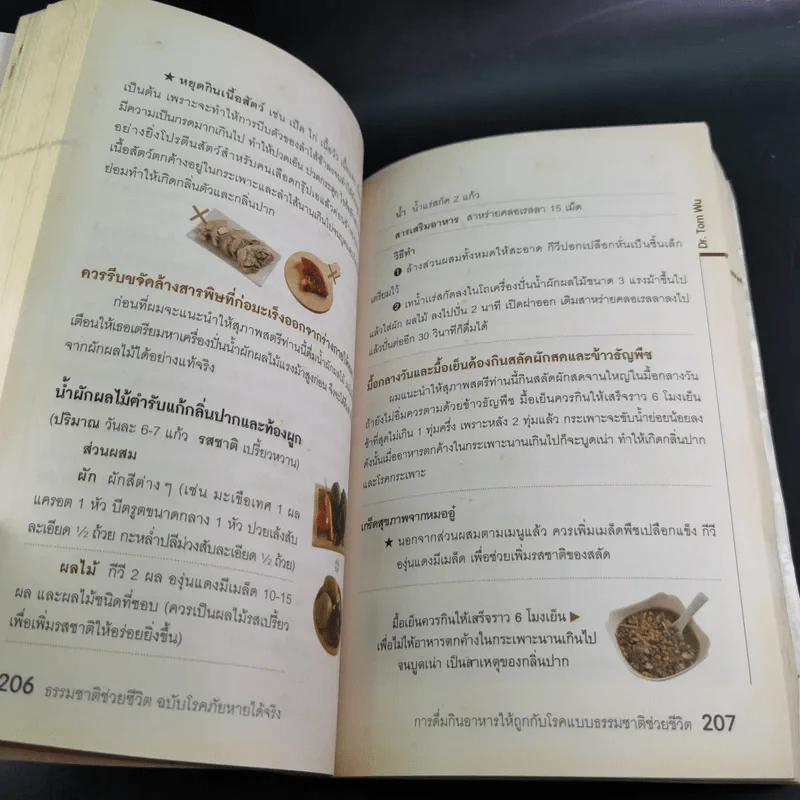 ★ หยุดกินเนื้อสัตว์ เช่น เป็ด ไก่ เนื้อวัว
เป็นต้น เพราะจะทำให้การบีบตัวของลำไส้
มีความเป็นกรดมากเกินไป ทำให้ปวดเอ็น ปวดกระดูก
อย่างยิ่งโปรตีนสัตว์สำหรับคนเลือดกรุ๊ปเอแล้ว
เนื้อสัตว์ตกค้างอยู่ในกระเพาะและลำไส้นานเกินไป
ย่อมทำให้เกิดกลิ่นตัวและกลิ่นปาก
ควรรีบขจัดล้างสารพิษที่ก่อมะเร็งออกจากร่างกาย
ก่อนที่ผมจะแนะนำให้สุภาพสตรีท่านนี้ดื่มน้ำผักผลไม้
เตือนให้เธอเตรียมหาเครื่องปั่นน้ำผักผลไม้แรงม้าสูงก่อน
จากผักผลไม้ได้อย่างแท้จริง
น้ำผักผลไม้ตำรับแก้กลิ่นปากและท้องผูก
(ปริมาณ วันละ 6-7 แก้ว รสชาติ เปรี้ยวหวาน)
ส่วนผสม
ผัก ผักสีต่างๆ (เช่น มะเขือเทศ 1 ผล
แครอต 1 หัว บีตรูตขนาดกลาง 1 หัว ปวยเล้งสับ
ละเอียด ½ ถ้วย กะหล่ำปลีม่วงสับละเอียด ½ ถ้วย)
ผลไม้ กีวี 2 ผล องุ่นแดงมีเมล็ด 10-15
ผล และผลไม้ชนิดที่ชอบ (ควรเป็นผลไม้รสเปรี้ยว
เพื่อเพิ่มรสชาติให้อร่อยยิ่งขึ้น)
206 ธรรมชาติช่วยชีวิต ฉบับโรคภัยหายได้จริง
น้ำ น้ำแร่สกัด 2 แก้ว
สารเสริมอาหาร สาหร่ายคลอเรลลา 15 เม็ด
วิธีทำ
❶ ล้างส่วนผสมทั้งหมดให้สะอาด กีวีปอกเปลือกหั่นเป็นชิ้นเล็ก
เตรียมไว้
❷ เทน้ำแร่สกัดลงในโถเครื่องปั่นน้ำผักผลไม้ขนาด 3 แรงม้าขึ้นไป
แล้วใส่ผัก ผลไม้ ลงไปปั่น 2 นาที เปิดฝาออก เติมสาหร่ายคลอเรลลาลงไป
แล้วปั่นต่ออีก 30 วินาทีก็ดื่มได้
มื้อกลางวันและมื้อเย็นต้องกินสลัดผักสดและข้าวธัญพืช
ผมแนะนำให้สุภาพสตรีท่านนี้กินสลัดผักสดจานใหญ่ในมื้อกลางวัน
ถ้ายังไม่อิ่มควรตามด้วยข้าวธัญพืช มื้อเย็นควรกินให้เสร็จราว 6 โมงเย็น
ช้าที่สุดไม่เกิน 1 ทุ่มครึ่ง เพราะหลัง 2 ทุ่มแล้ว กระเพาะจะขับน้ำย่อยน้อยลง
ดังนั้นเมื่ออาหารตกค้างในกระเพาะนานเกินไปก็จะบูดเน่า ทำให้เกิดกลิ่นปาก
และโรคกระเพาะ
เกร็ดสุขภาพจากหมออู๋
★ นอกจากส่วนผสมตามเมนูแล้ว ควรเพิ่มเมล็ดพืชเปลือกแข็ง กีวี
องุ่นแดงมีเมล็ด เพื่อช่วยเพิ่มรสชาติของสลัด
มื้อเย็นควรกินให้เสร็จราว 6 โมงเย็น ▶
เพื่อไม่ให้อาหารตกค้างในกระเพาะนานเกินไป
จนบูดเน่า เป็นสาเหตุของกลิ่นปาก
การดื่มกินอาหารให้ถูกกับโรคแบบธรรมชาติช่วยชีวิต 207
Dr. Tom Wu